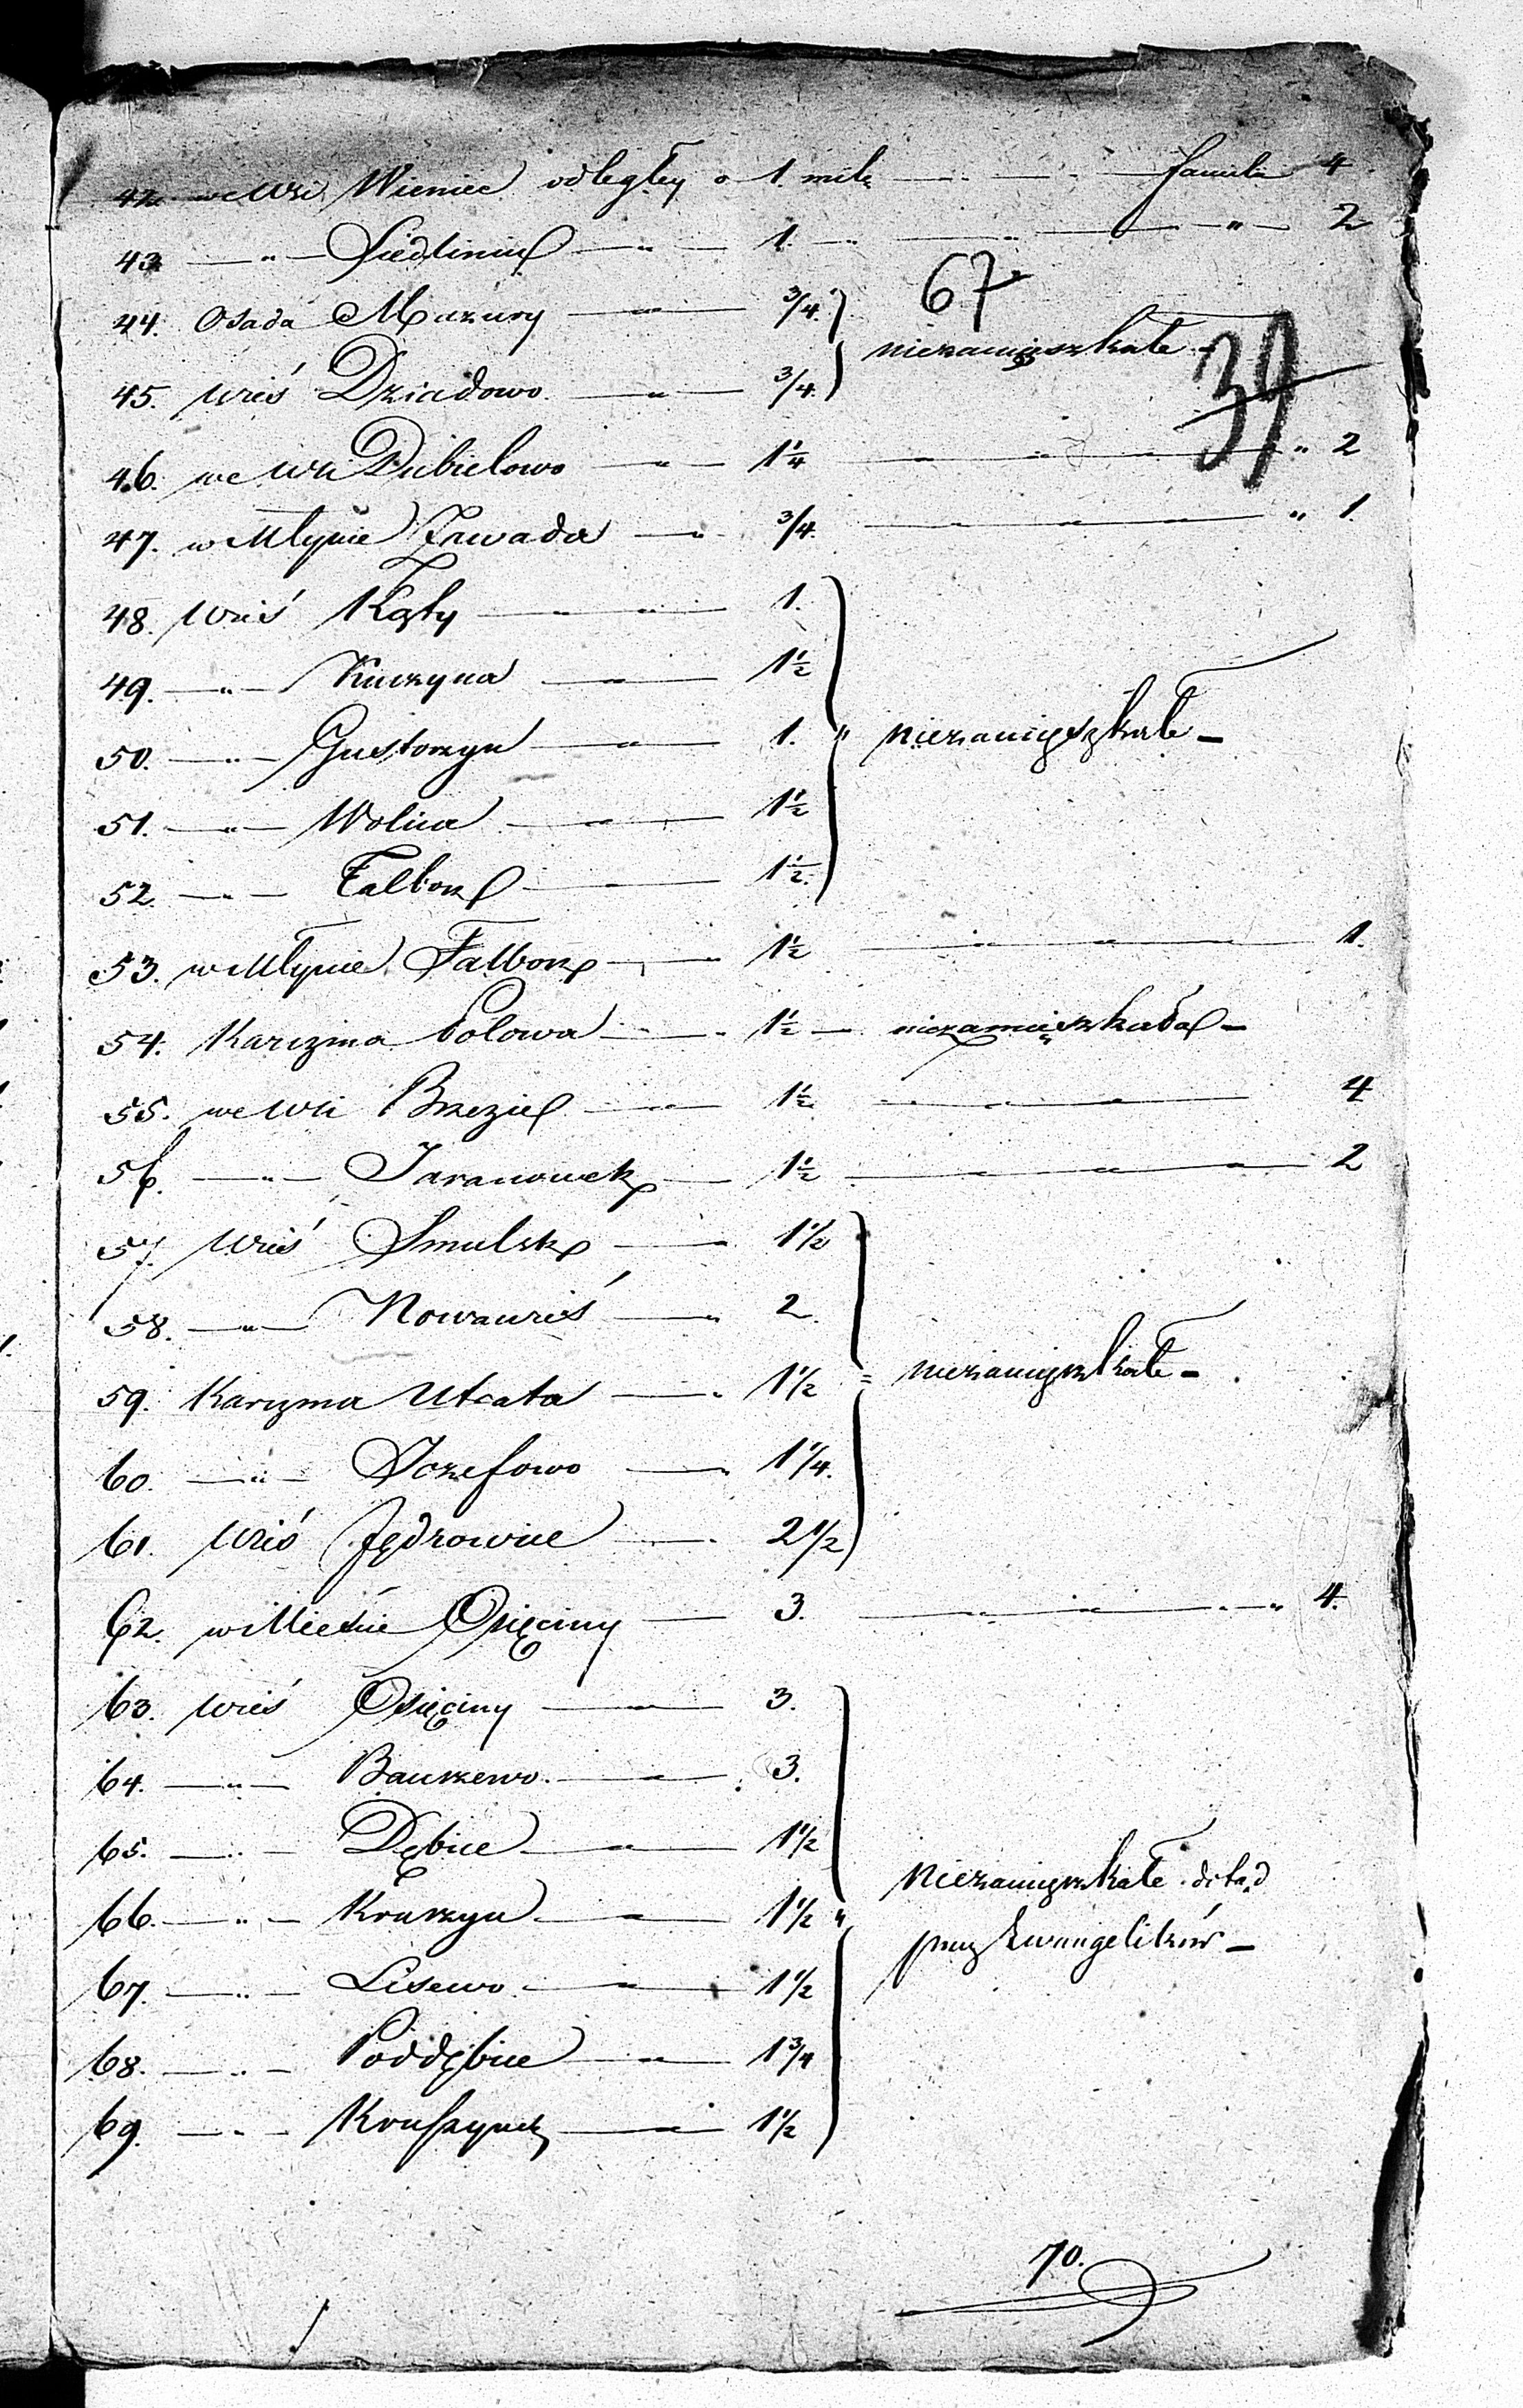 42. we Wsi Wieniec odległey o 1. milę — " — famili 4
43 — " — Siedlimin — " — 1. — " — " — 2
67
44. Osada Mazury — " — 3/4.
niezamięszkałe —
39
45. Wieś Dziadowo — " — 3/4.
46. we Wsi Dubielowo — " — 1 1/4 — " — " — " 2
47. w Młynie Zawada — " 3/4. — " — " — " 1.
48. Wieś Kąty — " — " — 1.
49. — " — Kuczyna — " — 1 1/2
50. — " — Gustorzyn — " — 1. " niezamięszkałe —
51. — " — Wolica — " — 1 1/2
52. — " — Falborz — 1 1/2.
53. w Młynie Falborz — " — 1 1/2 — " — " — 1.
54. Karczma Polowa — " — 1 1/2 — niezamięszkała —
55. we Wsi Brzezie — " — 1 1/2 — " — " — 4
56. — " — Jaranowek — 1 1/2 — " — " — 2
57. Wieś Smulsk — " 1 1/2
58. — " — Nowawieś — " 2.
59. Karczma Utrata — " 1 1/2 = niezamięszkałe —
60. — " — Jozefowo — " 1 1/4.
61. Wieś Jędrowice — " 2 1/2
62. w Mieście Osięciny — 3. — " — " — " 4.
63. Wieś Osięciny — " — 3.
64. — " — Bauszewo. — " — 3.
65. — " — Dębice — " — 1 1/2
niezamięszkałe dotąd
66. — " — Kruszyn — " — 1 1/2 "
przez Ewangelików —
67. — " — Lisewo — " — 1 1/2
68. — " — Poddębice — " — 1 3/4
69. — " — Kruszynek — " — 1 1/2
70.